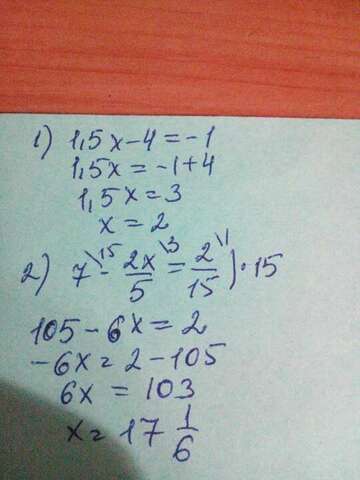 1) 1,5x-4=-1
1,5x=-1+4
1,5x=3
x=2
2) 7\15 - 2x/5\3 = 2/15\1 )·15
105-6x=2
-6x=2-105
6x=103
x=17 1/6